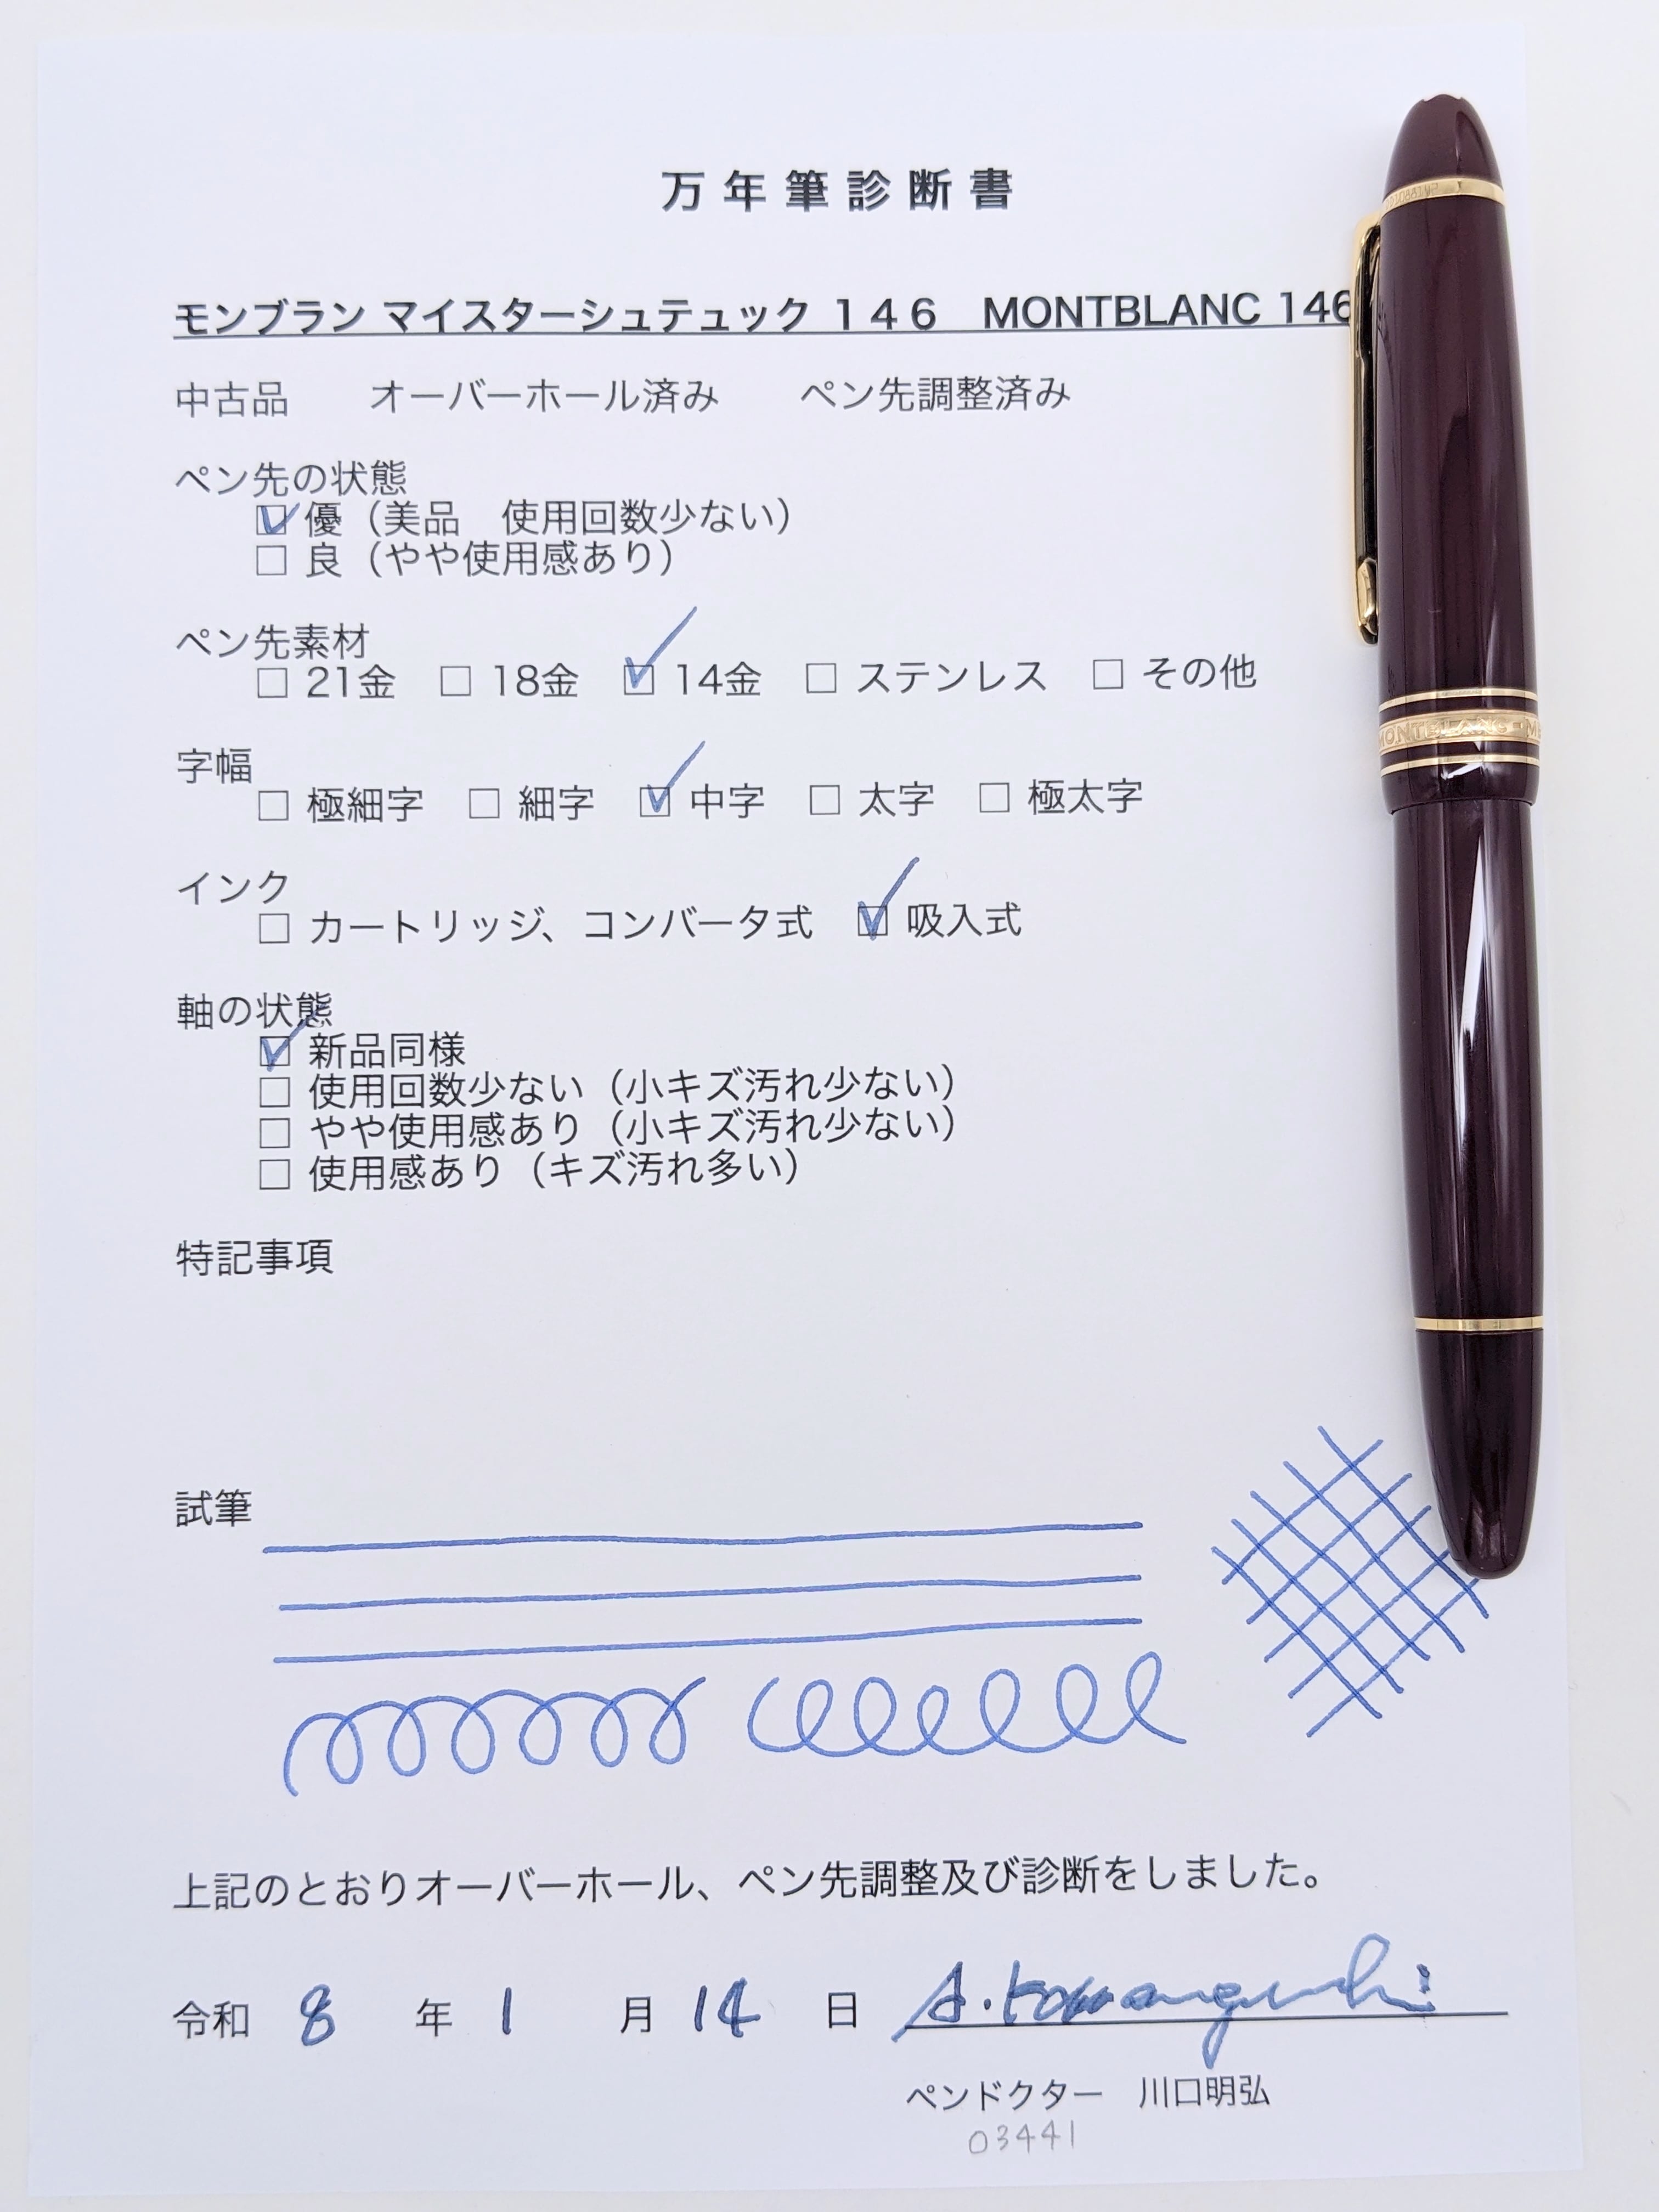 万年筆診断書
モンブラン マイスターシュテュック １４６　MONTBLANC 146
中古品　　オーバーホール済み　　ペン先調整済み
ペン先の状態
☑ 優（美品　使用回数少ない）
□ 良（やや使用感あり）
ペン先素材
□ 21金　□ 18金　☑ 14金　□ ステンレス　□ その他
字幅
□ 極細字　□ 細字　☑ 中字　□ 太字　□ 極太字
インク
□ カートリッジ、コンバータ式　☑ 吸入式
軸の状態
☑ 新品同様
□ 使用回数少ない（小キズ汚れ少ない）
□ やや使用感あり（小キズ汚れ少ない）
□ 使用感あり（キズ汚れ多い）
特記事項
試筆
上記のとおりオーバーホール、ペン先調整及び診断をしました。
令和 8 年 1 月 14 日 A.Kawaguchi
ペンドクター　川口明弘
03441
MONTBLANC